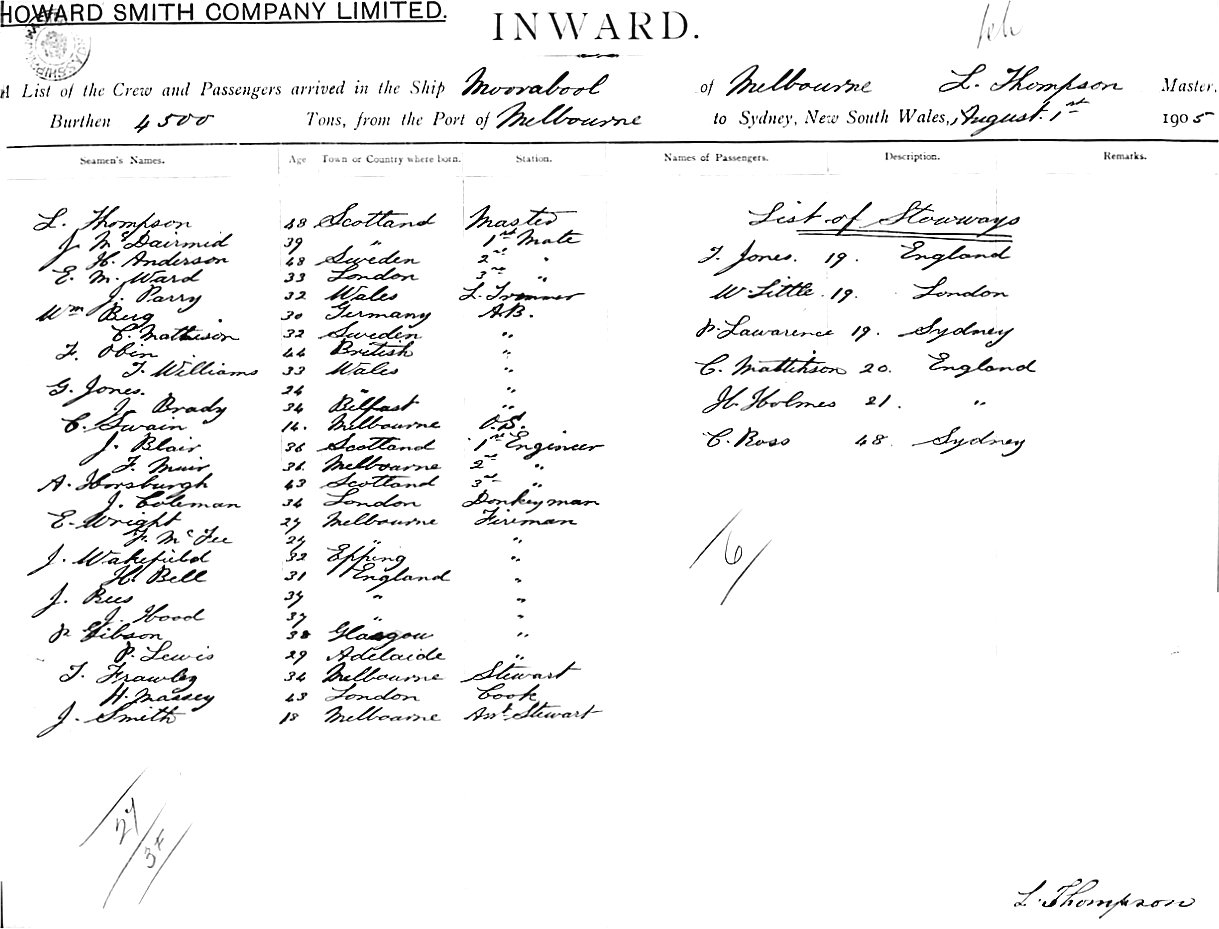 HOWARD SMITH COMPANY LIMITED.
INWARD.
A List of the Crew and Passengers arrived in the Ship Moorabool of Melbourne L. Thompson Master,
Burthen 4500 Tons, from the Port of Melbourne to Sydney, New South Wales, August 1st 1905
Seamen's Names. Age Town or Country where born. Station. Names of Passengers. Description. Remarks.
L. Thompson 48 Scotland Master
J. McDairmid 39 " 1st Mate
H. Anderson 48 Sweden 2nd "
E. M. Ward 33 London 3rd "
J. Parry 32 Wales L. Trimmer
Wm Berg 30 Germany A.B.
C. Mathison 32 Sweden "
F. Obin 44 British "
T. Williams 33 Wales "
G. Jones. 24 " "
J. Brady 34 Belfast "
C. Swain 16. Melbourne O.S.
J. Blair 36 Scotland 1st Engineer
F. Muir 36 Melbourne 2nd "
A. Horsburgh 43 Scotland 3rd "
J. Coleman 34 London Donkeyman
E. Wright 27 Melbourne Fireman
F. McFee 27 " "
J. Wakefield 32 Epping "
H. Bell 31 England "
J. Bees 37 " "
J. Hood 37 " "
P. Gibson 38 Glasgow "
P. Lewis 29 Adelaide "
T. Frawley 34 Melbourne Stewart
H. Massey 43 London Cook
J. Smith 18 Melbourne Asst. Stewart
List of Stoways
T. Jones. 19. England
W. Little. 19. London
P. Lawarence 19. Sydney
C. Mattihson 20. England
H. Holmes 21. "
C. Ross 48 Sydney
6
27
34
L. Thompson